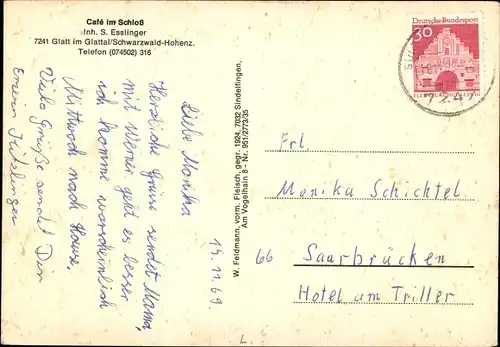 Café im Schloß
Inh. S. Esslinger
7241 Glatt im Glattal/Schwarzwald-Hohenz.
Telefon (074502) 316
14.11.69
Liebe Monika
Herzliche Grüsse sendet Mama,
mit Werner geht es besser
ich komme warscheinlich
Mittwoch nach Hause,
Viele Grüße sendet Dir
W. Feldmann, vorm. Fleisch, gegr. 1924, 7032 Sindelfingen,
Am Vogelhain 8 - Nr. 951/2773/35
Deutsche Bundespost
30
7247
Frl.
Monika Schichtel
66 Saarbrücken
Hotel am Triller
L.